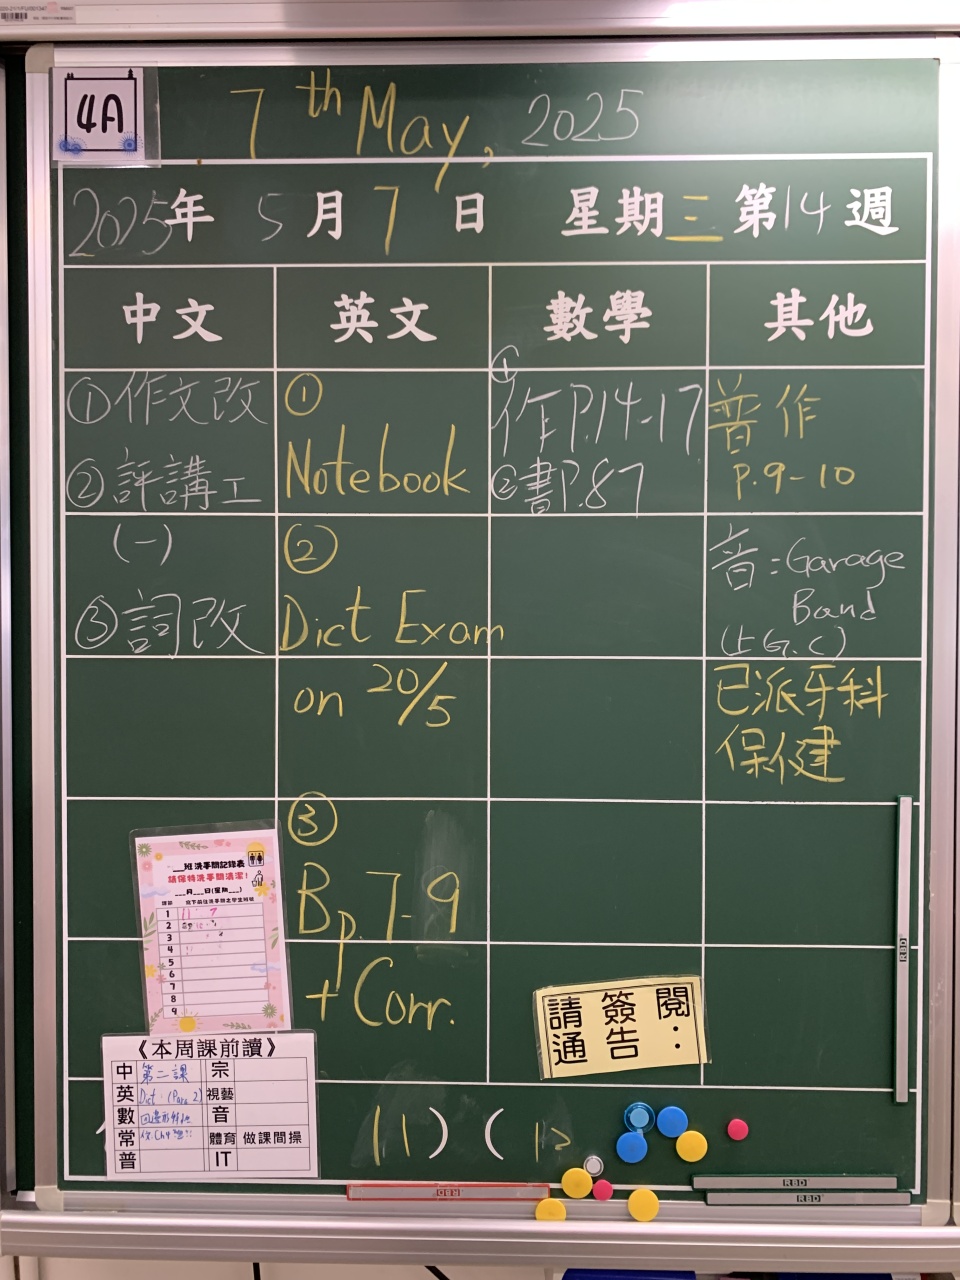 4A
7th May, 2025
2025年 5月7日 星期三 第14週
中文 英文 數學 其他
①作文改
②評講工
(一)
③詞改
①
Notebook
②
Dict Exam
on 20/5
③
Bp.7-9
+Corr.
①
作P.14-17
②書P.87
普作
P.9-10
音:Garage
Band
(上G.C)
已派牙科
保健
___班洗手間記錄表
請保持洗手間清潔!
___月___日(星期___)
1 11 7
2
3
4
5
6
7
8
9
請簽閱
通告:
《本周課前讀》
中 第二課 宗
英 Dict.(Para 2) 視藝
數 四邊形特性 音
常 體育 做課間操
普 IT
(11)( 12
RBD
RBD
RBD